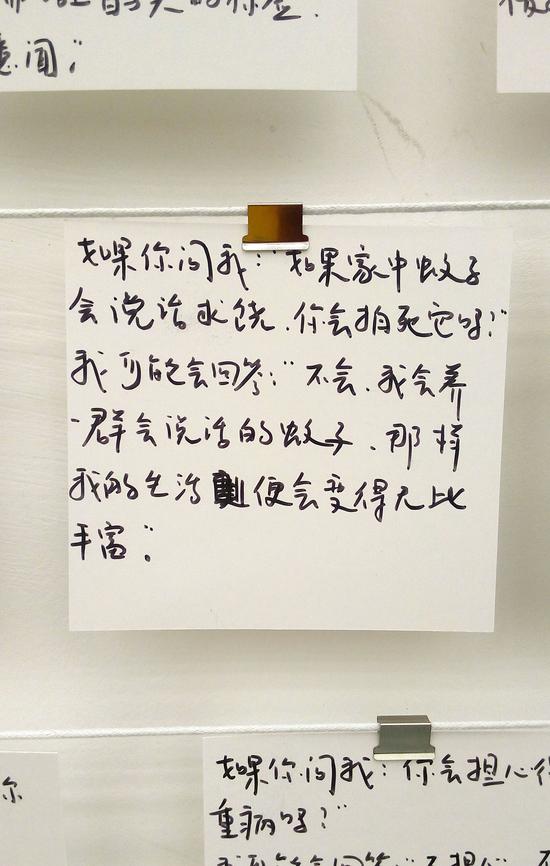 意闻"
如果你问我："如果家中蚊子
会说话求饶，你会拍死它吗？"
我可能会回答："不会，我会养
一群会说话的蚊子，那样
我的生活便会变得无比
丰富。"
你
如果你问我：你会担心得
重病吗？"